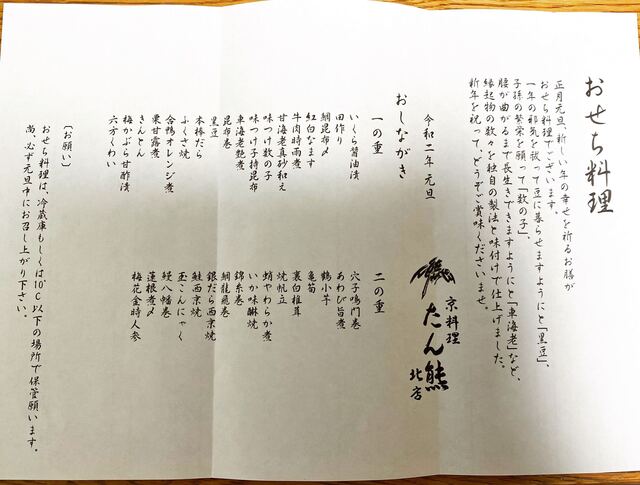 おせち料理
正月元旦、新しい年の幸せを祈るお膳が
おせち料理でございます。
一年の邪気を祓って豆に暮らせますようにと「黒豆」、
子孫の繁栄を願って「数の子」、
腰が曲がるまで長生きできますようにと「車海老」など、
縁起物の数々を独自の製法と味付けで仕上げました。
祈年を祝って、どうぞご賞味くださいませ。
令和二年 元旦
京料理
たん熊
北店
おしながき
一の重
いくら醤油漬
田作り
鯛昆布〆
紅白なます
牛肉時雨煮
甘海老真砂和え
味つけ数の子
味つけ子持昆布
車海老艶煮
昆布巻
黒豆
本棒だら
ふくさ焼
合鴨オレンジ煮
栗甘露煮
きんとん
梅かぶら甘酢漬
六方くわい
二の重
穴子鳴門巻
あわび旨煮
鶴小芋
亀筍
裏白椎茸
焼帆立
蛸やわらか煮
いか味醂焼
錦糸巻
鯛龍飛巻
銀だら西京焼
鮭西京焼
玉こんにゃく
鰻八幡巻
蓮根煮〆
梅花金時人参
〔お願い〕
おせち料理は、冷蔵庫もしくは10℃以下の場所で保管願います。
尚、必ず元旦中にお召し上がり下さい。